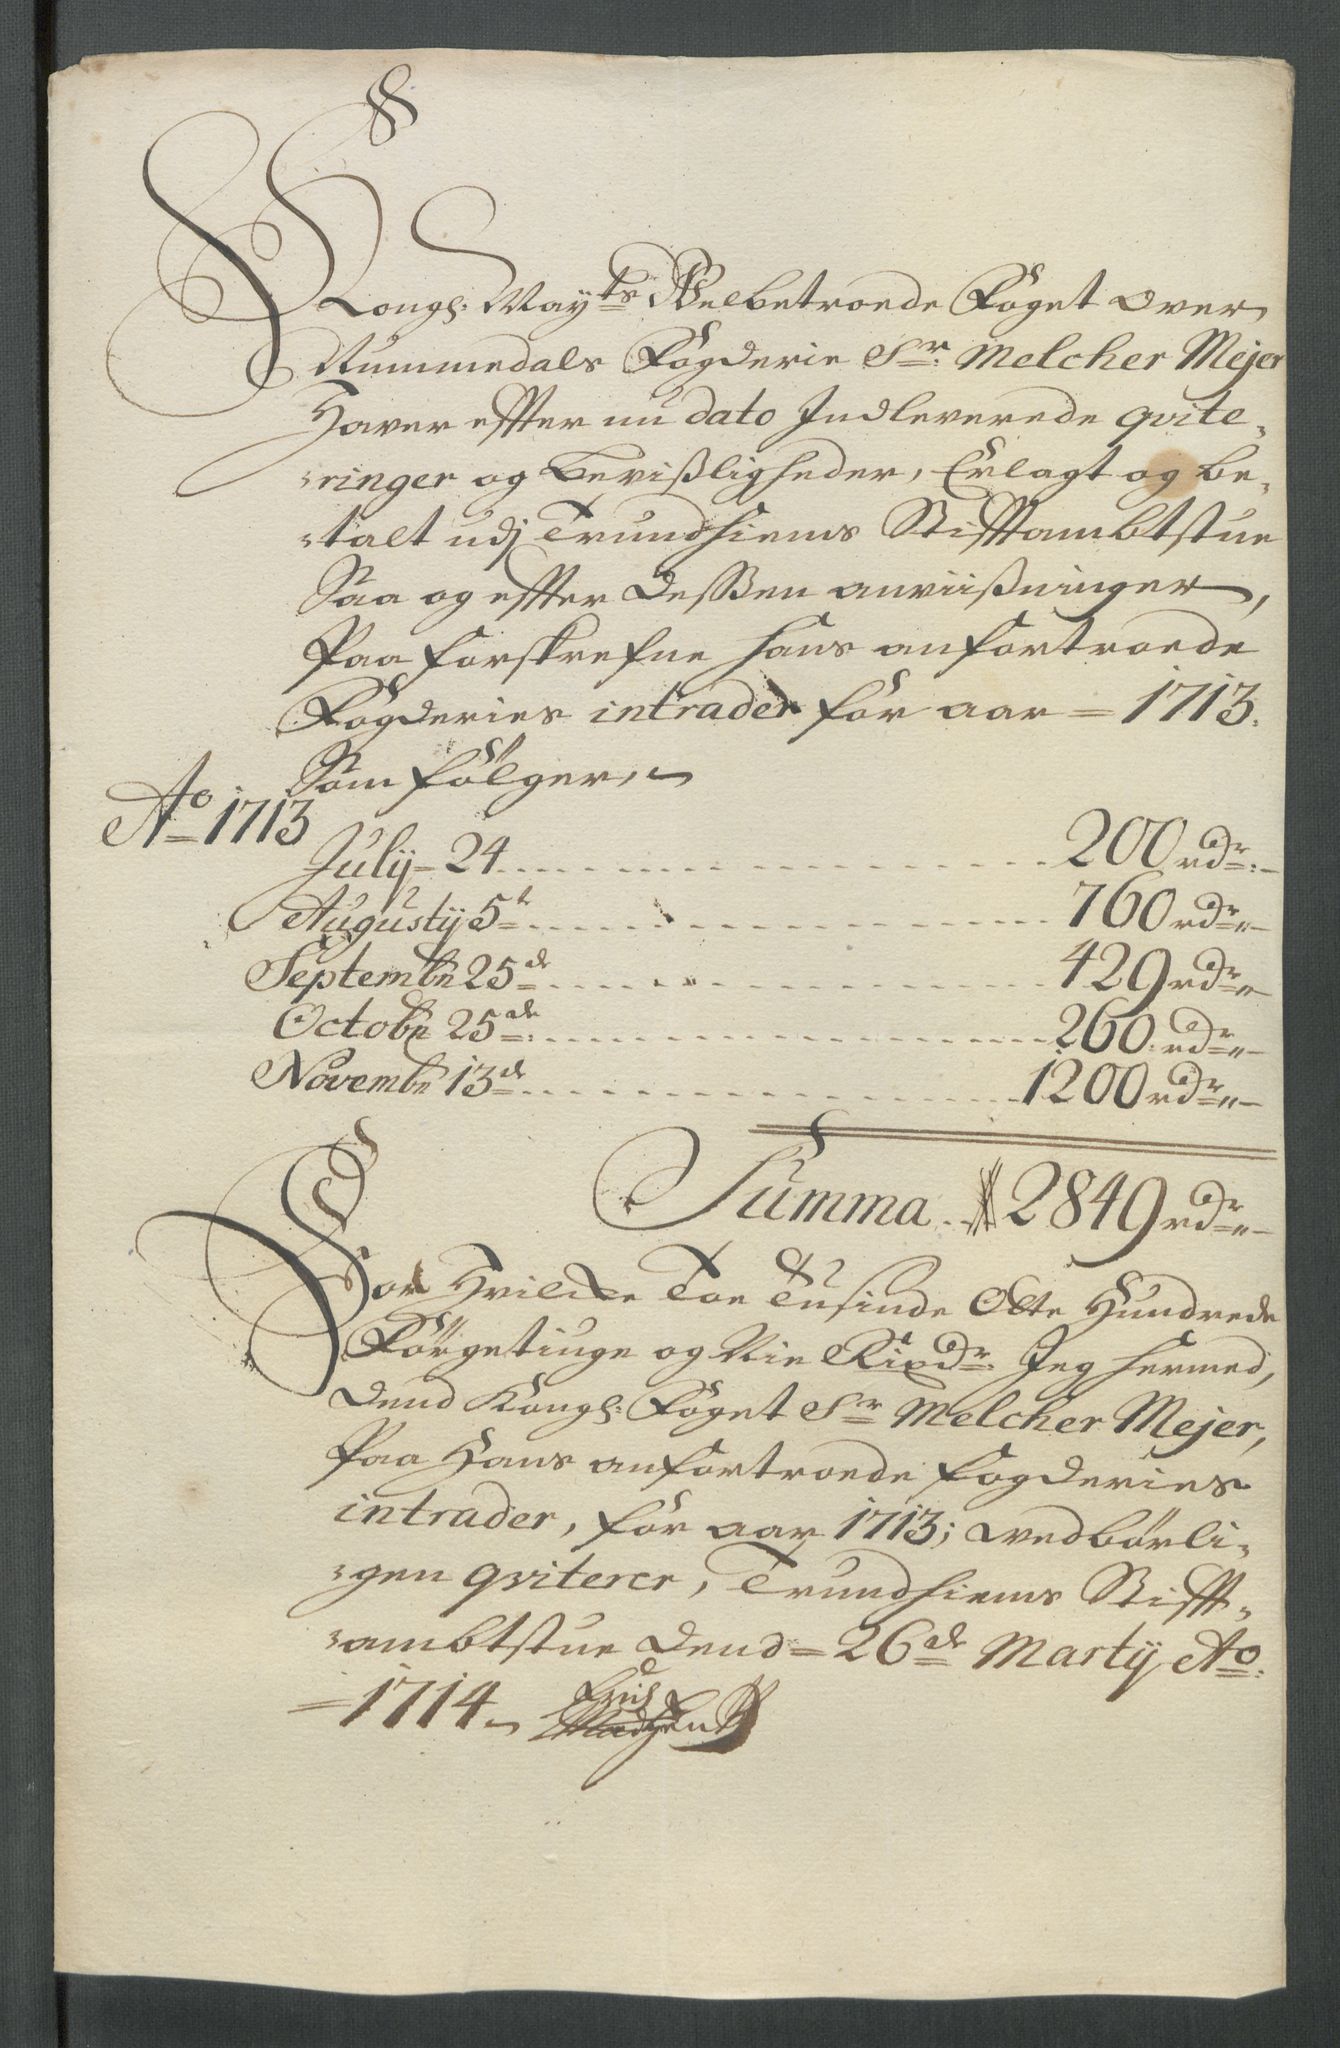 Kongl: Mayts Welbetroede Foget over
Nummedals Fogderie Sr. Melcher Mejer
Haver effter nu dato Indleverede qvite-
-ringer og Bevißligheder, Erlagt og be-
-talt udj Trundhiems Stifftambtstue
Saa og effter desßen anviißninger,
Paa forskrefne hans anfortroede
Fogderies intrader for aar = 1713.
Som fölger.
Ao 1713
July - 24 200 rdr:-
Augustij 5te 760 rdr:-
Septembr 25de 429 rdr:-
Octobr 25de: 260 rdr:-
Novembr 13de 1200 rdr:-
Summa 2849 rdr:-
For Hvilcke Toe Tusinde Otte Hundrede
Förgetiuge og Nie Rixdr. Jeg hermed,
dend Kongl: Foget Sr Melcher Mejer,
Paa Hans anfortroede fogderies
intrader, for aar 1713; vedbörli-
-gen qviterer, Trundhiems Stifft-
-ambtstue dend = 26de Martij Ao:
= 1714.